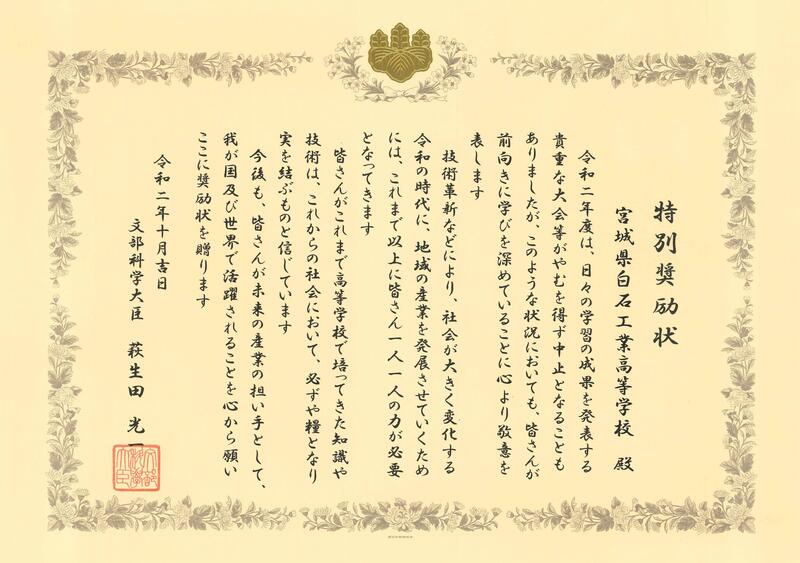 特別奨励状
宮城県白石工業高等学校 殿
令和二年度は、日々の学習の成果を発表する
貴重な大会等がやむを得ず中止となることも
ありましたが、このような状況においても、皆さんが
前向きに学びを深めていることに心より敬意を
表します
技術革新などにより、社会が大きく変化する
令和の時代に、地域の産業を発展させていくため
には、これまで以上に皆さん一人一人の力が必要
となってきます
皆さんがこれまで高等学校で培ってきた知識や
技術は、これからの社会において、必ずや糧となり
実を結ぶものと信じています
今後も、皆さんが未来の産業の担い手として、
我が国及び世界で活躍されることを心から願い
ここに奨励状を贈ります
令和二年十月吉日
文部科学大臣 萩生田 光一